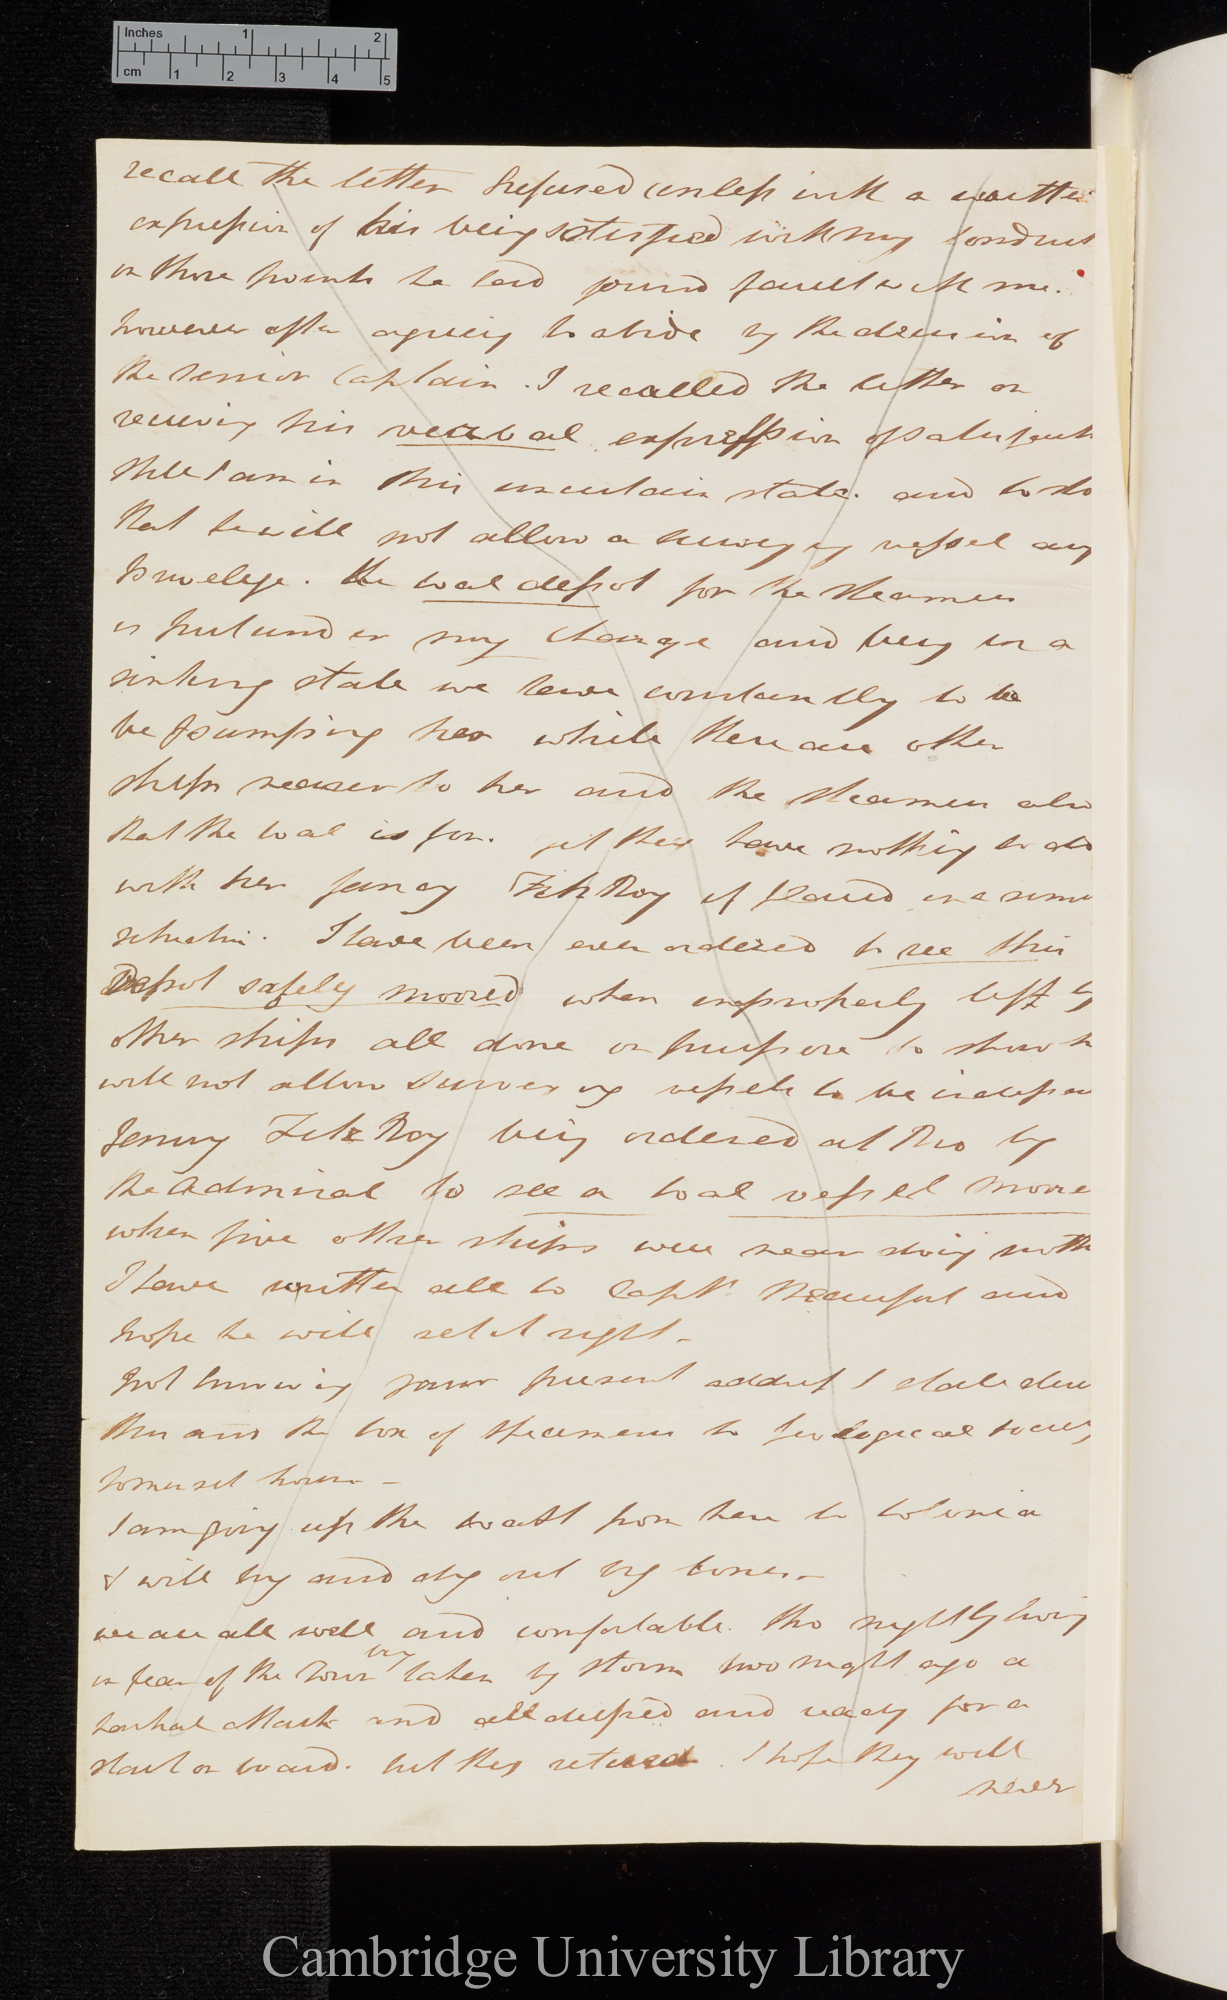 Inches 1 2
cm 1 2 3 4 5
recall the letter I refused unless with a written
expression of his being satisfied with my conduct
on those points he had found fault with me.
however after agreeing to abide by the decision of
the senior Captain. I recalled the letter on
receiving his verbal expression of satisfact
still I am in this uncertain state. and to sho
that he will not allow a surveying vessel any
privelege. the coal depot for the steamers
is put under my charge and being in a
sinking state we have constantly to be
be pumping her while there are other
ships nearer to her and the steamers also
that the coal is for. yet they have nothing to do
with her fancy FitzRoy if placed in a simi
situation. I have been even ordered to see this
Depot safely moored when improperly left by
other ships all done on purpose to show h
will not allow Surveying vessels to be indepen
Fancy FitzRoy being ordered at Rio by
the Admiral to see a coal vessel moore
when five other ships were near doing noth
I have written all to Captn. Beaufort and
hope he will set it right—
Not knowing your present address I shall direc
this and the box of specimens to Geological Society
Somerset house—
I am going up the coast from here to Colonia
& will try and dig out big bones.—
we are all well and comfortable. tho nightly living
in fear of the Town being taken by storm two nights ago a
partial attack and all dressed and ready for a
start on board. but they retired. I hope they will
never
Cambridge University Library